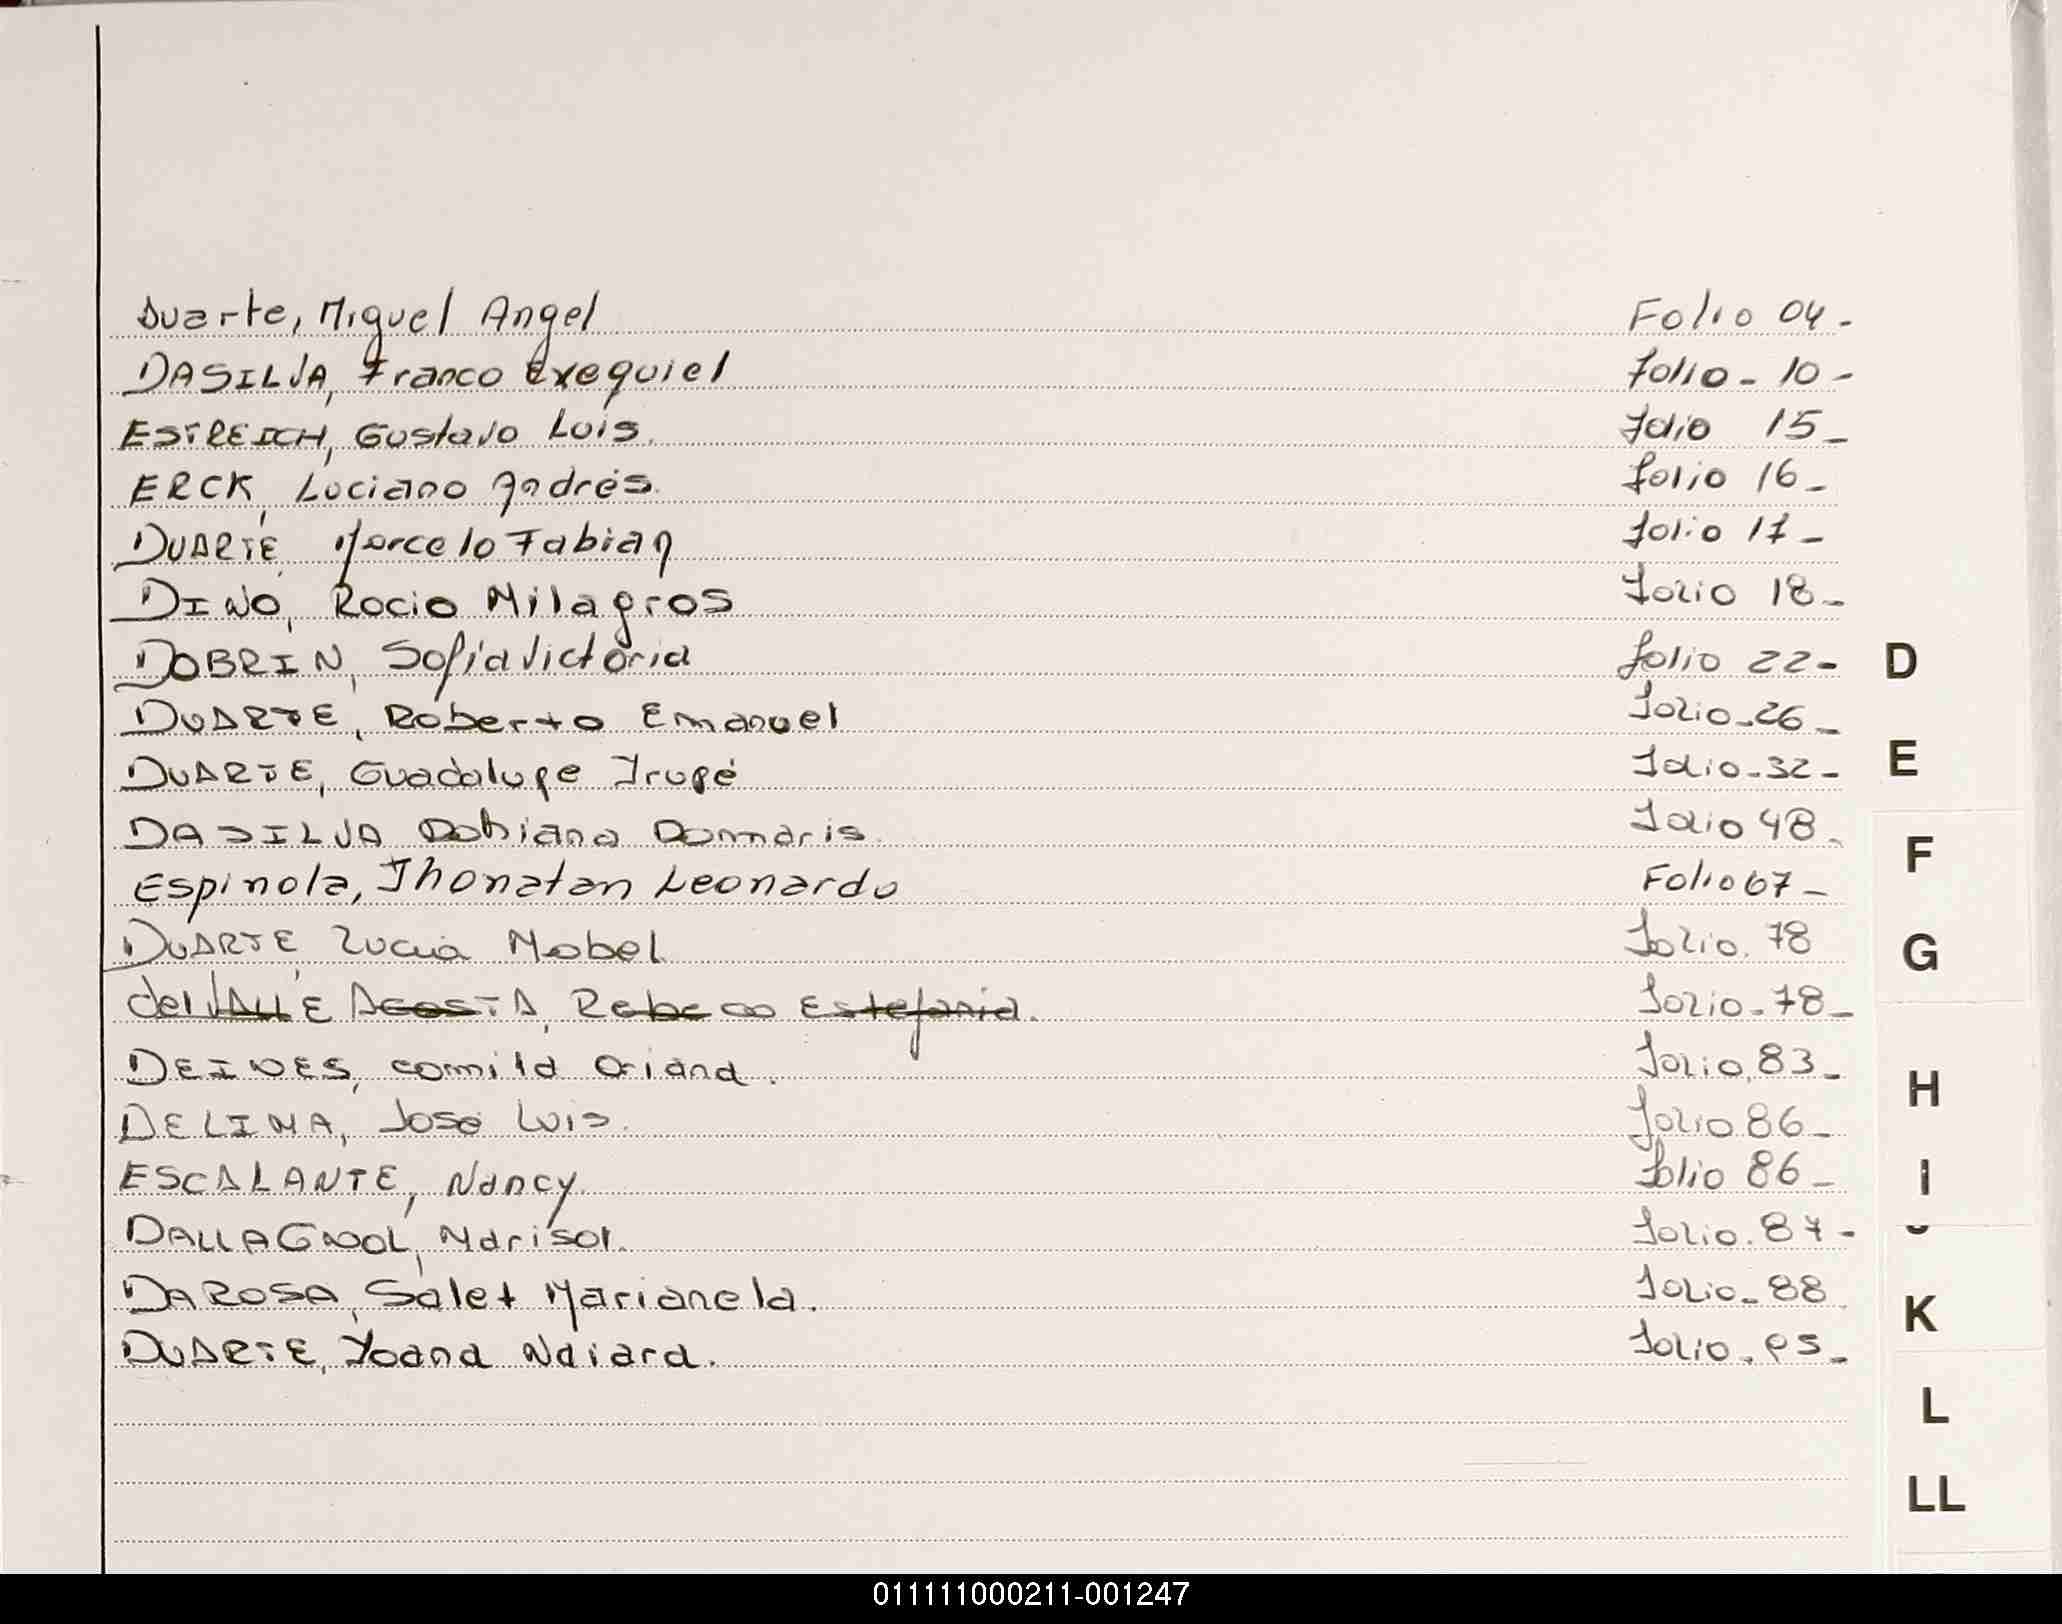 Duarte, Miguel Angel Folio 04-
DASILVA, Franco Exequiel folio-10-
ESTREICH, Gustavo Luis. folio 15-
ERCK, Luciano Andrés. folio 16-
DUARTE, Marcelo Fabian folio 17-
DINO, Rocio Milagros folio 18-
DOBRIN, Sofia Victoria folio 22-
DUARTE, Roberto Emanuel folio-26-
DUARTE, Guadalupe Irupé folio-32-
DASILVA Damaris. folio 48.
Espinola, Jhonatan Leonardo Folio 67-
DUARTE, Lucia Mabel folio. 78
del VALLE ACOSTA, Rebeca Estefania. folio-78-
DEINES, Camila Oriana. folio.83-
DELIMA, José Luis. folio 86-
ESCALANTE, Nancy. folio 86-
DALLAGNOL, Marisol. folio.87-
DAROSA, Salet Marianela. folio-88
DUARTE, Yoana Naiara. folio.95-
D
E
F
G
H
I
K
L
LL
011111000211-001247